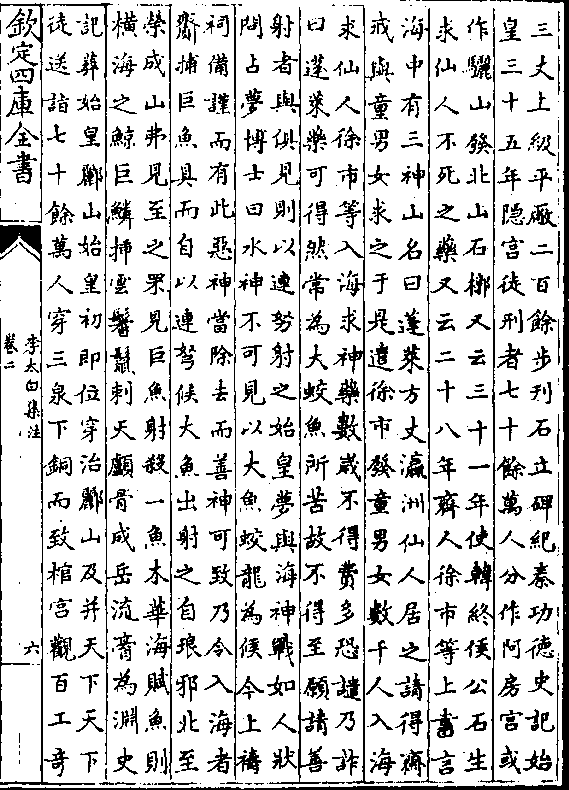 三丈上級平敞二百餘步刋石立碑紀秦功德史記始
皇三十五年隐宫徒刑者七十餘萬人分作阿房宫或
作驪山發北山石槨又云三十一年使韓終侯公石生
求仙人不死之藥又云二十八年齊人徐市等上書言
海中有三神山名曰蓬萊方丈瀛洲仙人居之請得齋
戒與童男女求之于是遣徐市發童男女數千人入海
求仙人徐市等入海求神藥數歲不得費多恐譴乃詐
曰蓬萊藥可得然常為大蛟魚所苦故不得至願請善
射者與俱見則以連弩射之始皇夢與海神戰如人狀
問占夢博士曰水神不可見以大魚蛟龍為候今上禱
祠備謹而有此惡神當除去而善神可致乃令入海者
齎捕巨魚具而自以連弩候大魚出射之自琅邪北至
榮成山弗見至之罘見巨魚射殺一魚木華海賦魚則
横海之鯨巨鱗揷雲鬐鬣刺天顱骨成岳流膏為淵史
記葬始皇酈山始皇初即位穿治酈山及并天下天下
徒送詣七十餘萬人穿三泉下銅而致棺宫觀百工奇
欽定四庫全書
李太白集注
卷二
六